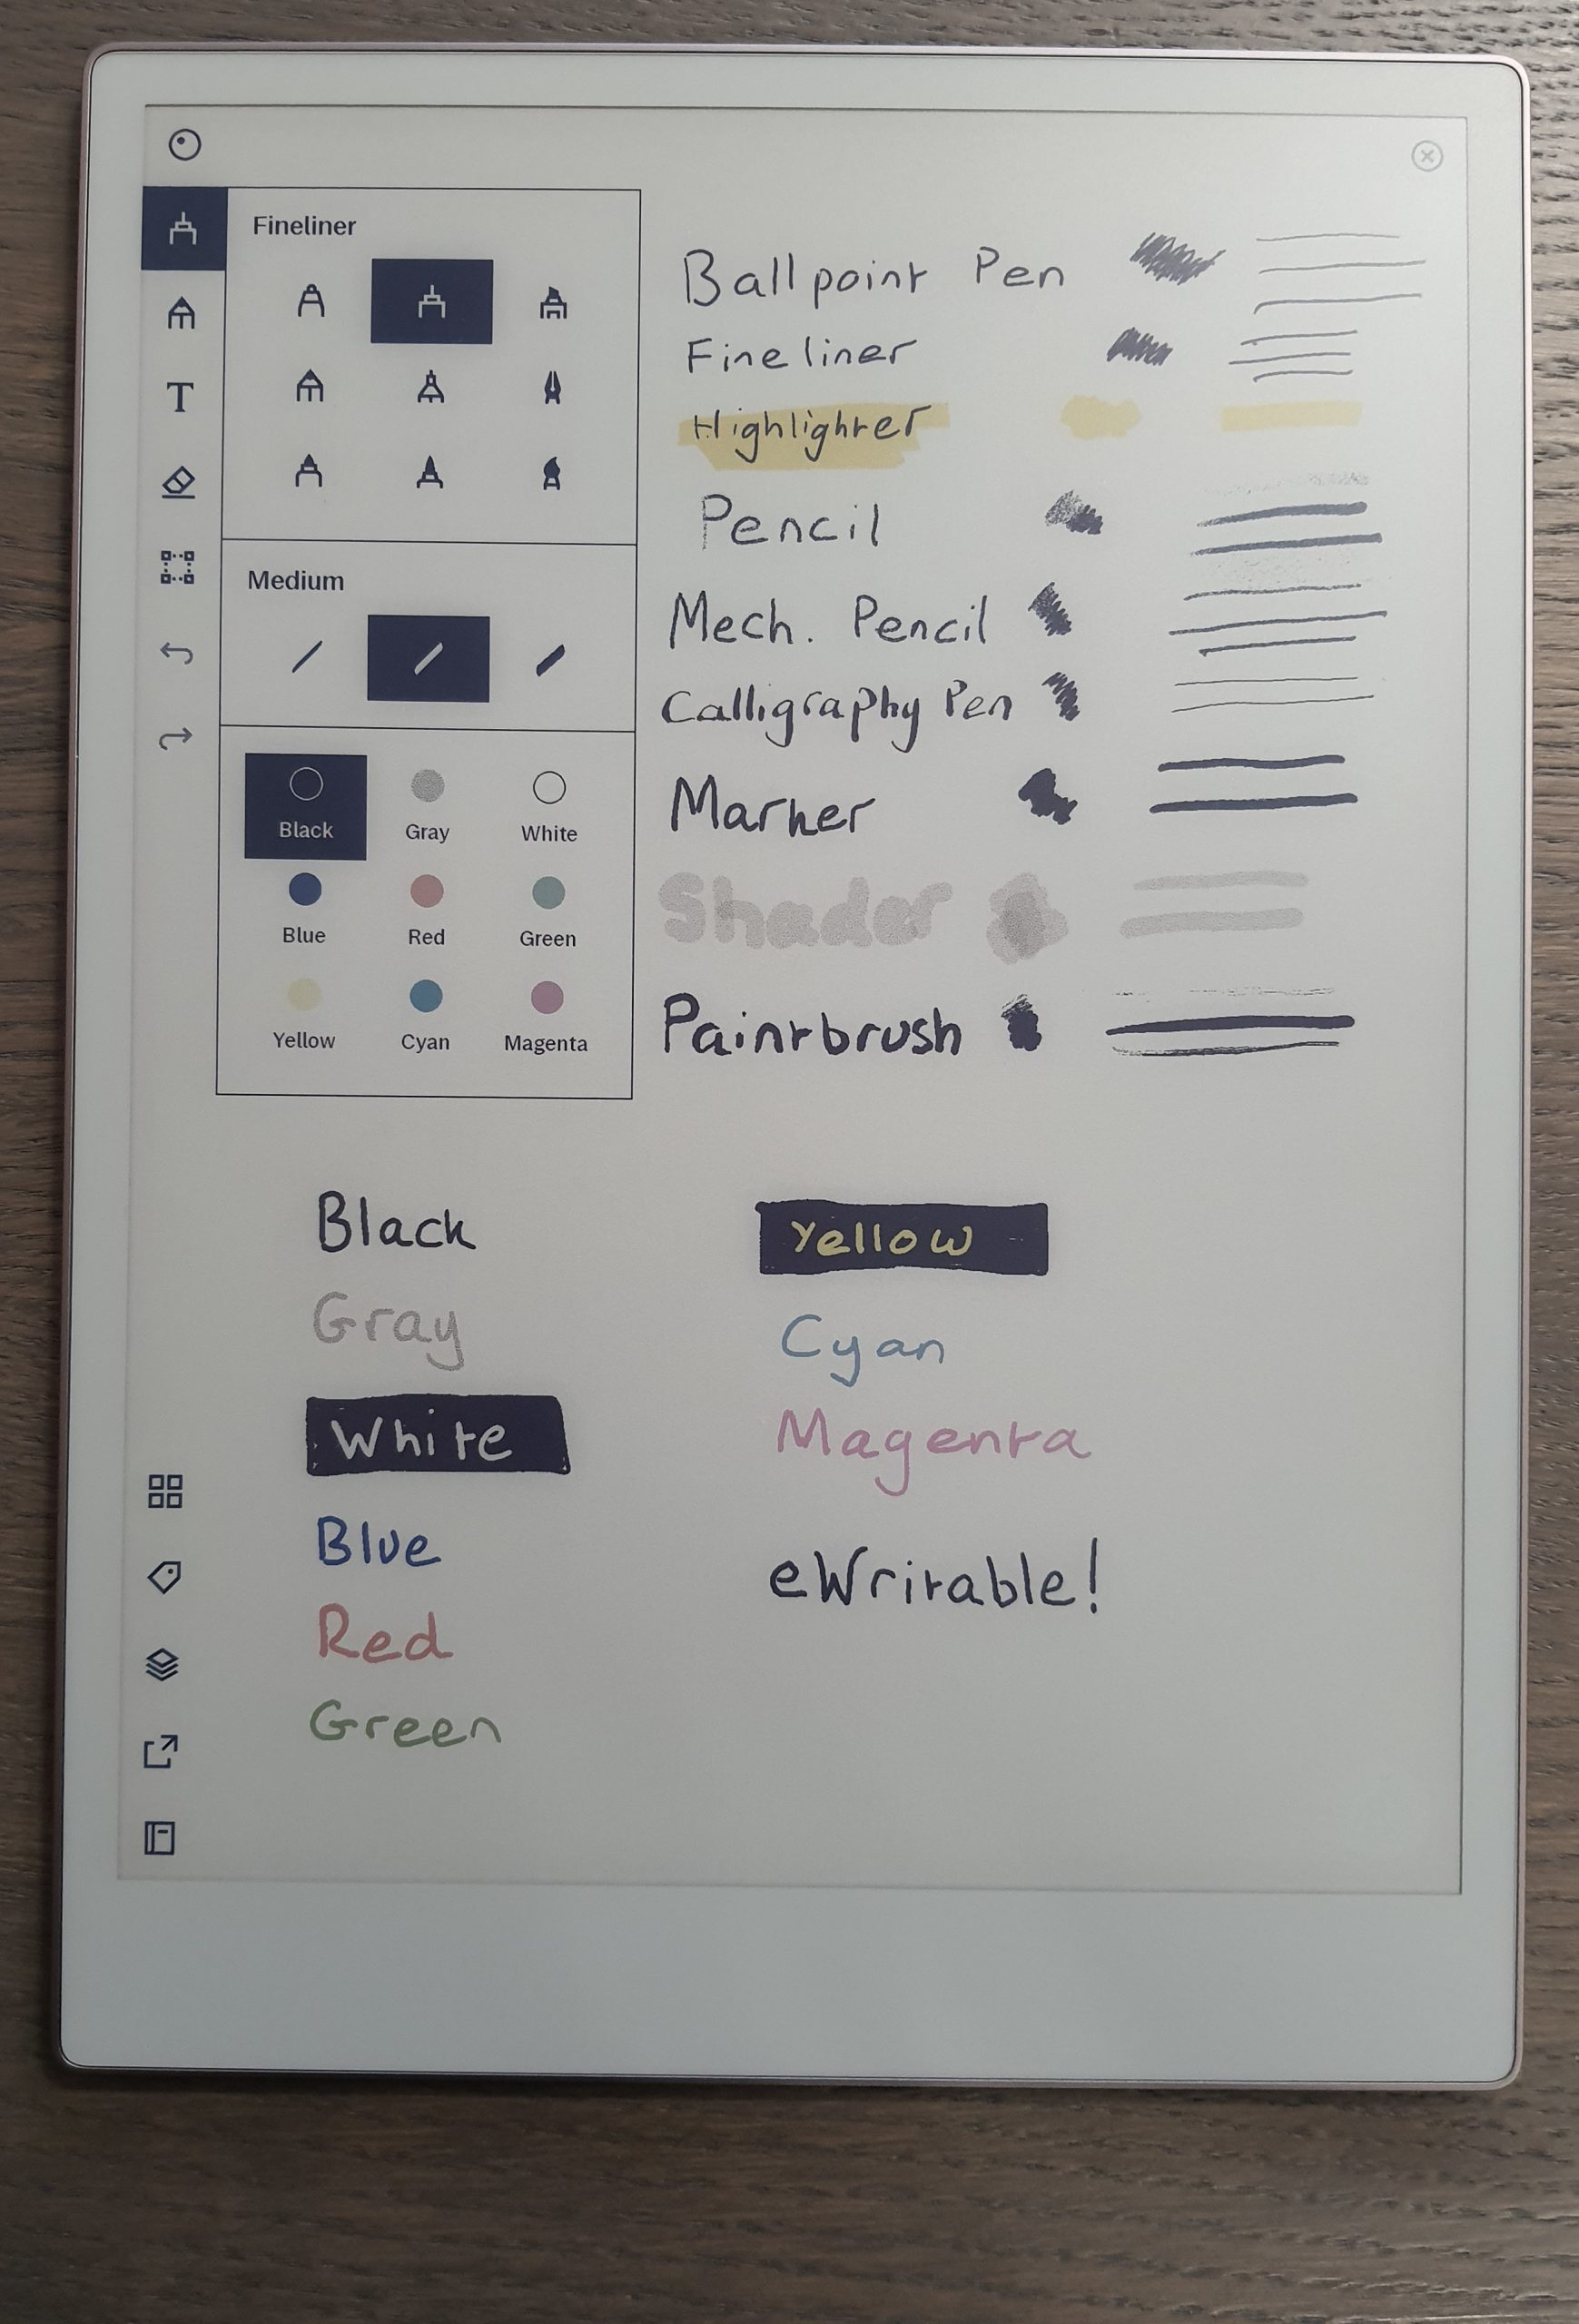 Fineliner
Medium
Black Gray White
Blue Red Green
Yellow Cyan Magenta
Ballpoint Pen
Fineliner
Highlighter
Pencil
Mech. Pencil
Calligraphy Pen
Marker
Shader
Paintbrush
Black
Gray
White
Blue
Red
Green
Yellow
Cyan
Magenta
eWritable!